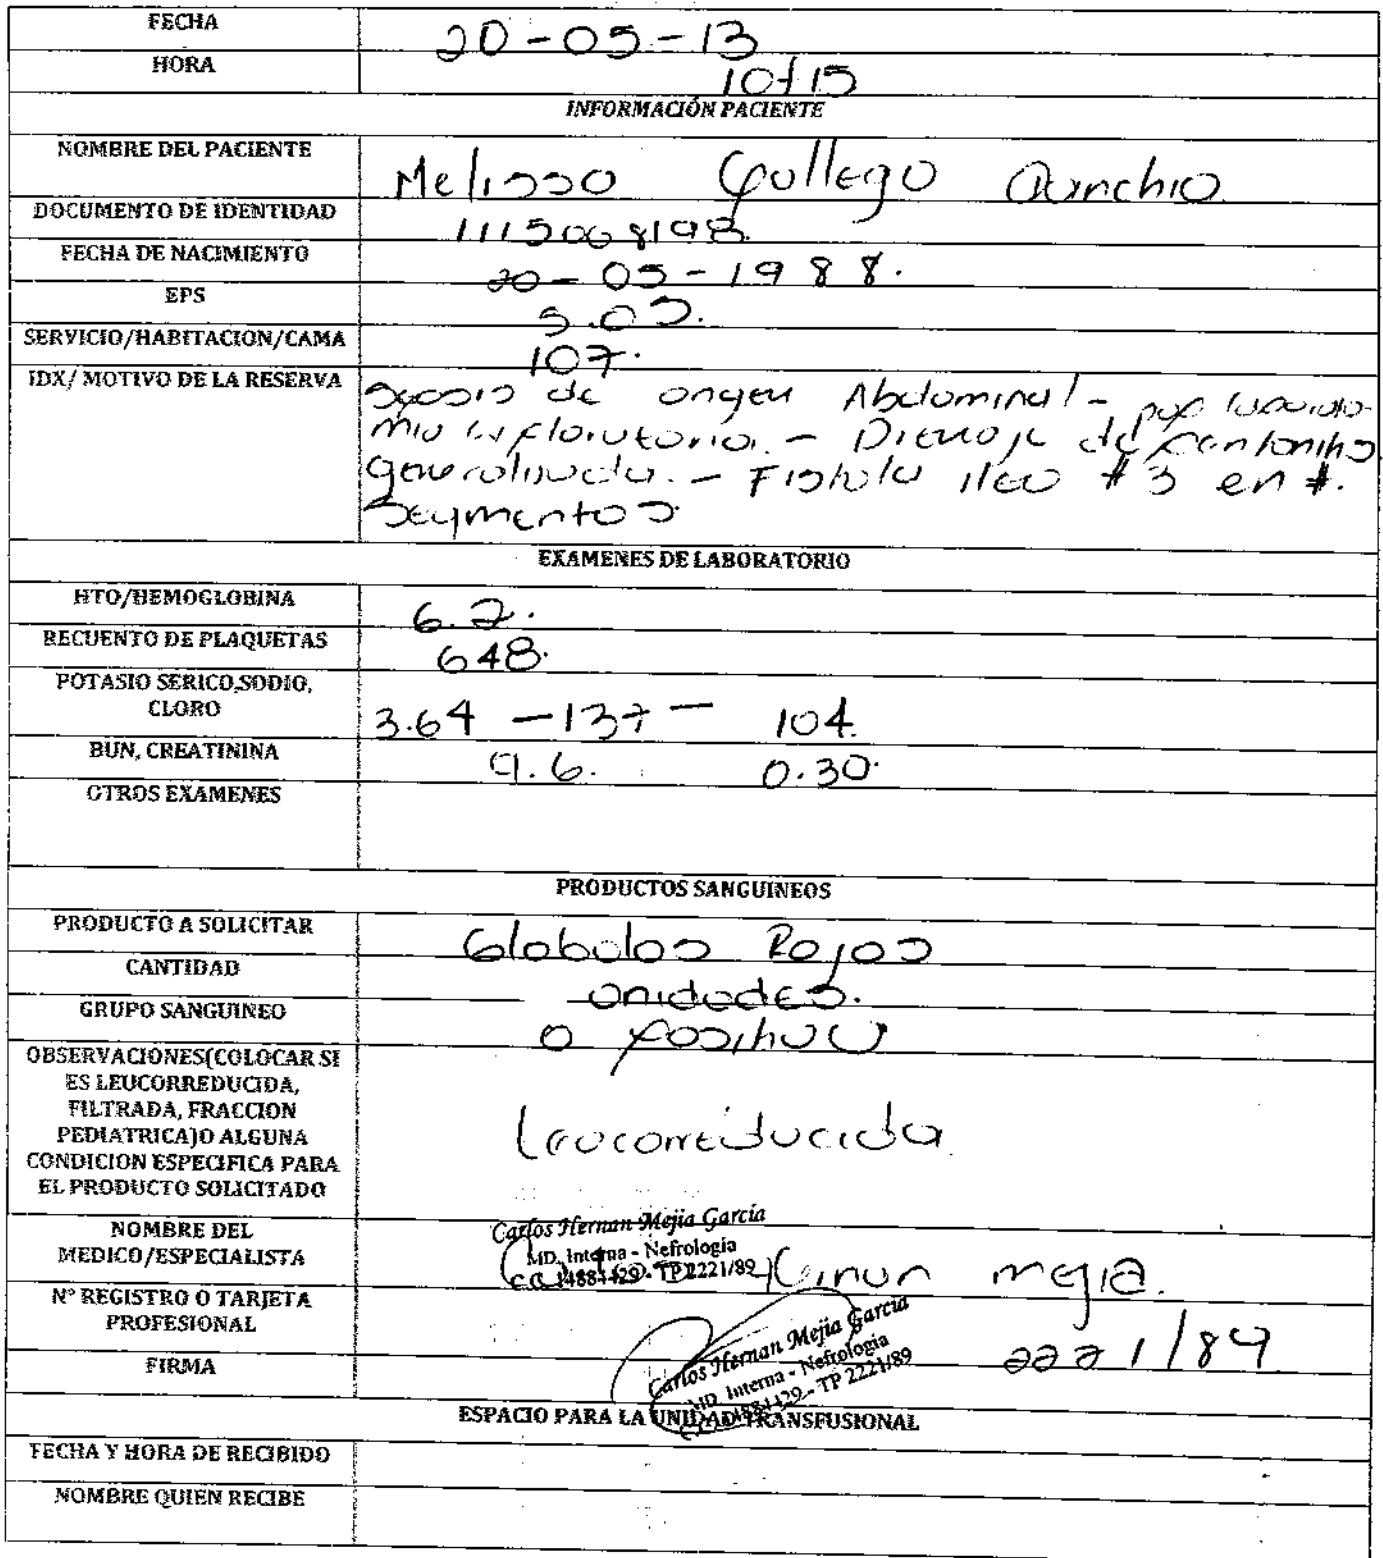 FECHA
20-05-13
HORA
10+15
INFORMACIÓN PACIENTE
NOMBRE DEL PACIENTE
Melissa Gallego
DOCUMENTO DE IDENTIDAD
1115068198
FECHA DE NACIMIENTO
20-05-1988.
EPS
S.O.S.
SERVICIO/HABITACION/CAMA
107.
IDX/ MOTIVO DE LA RESERVA
Sepsis de origen Abdominal - pop
- Drenaje de Peritonitis
generalizada. - Fistula ileo #3 en #.
Segmentos
EXAMENES DE LABORATORIO
HTO/HEMOGLOBINA
6.2.
RECUENTO DE PLAQUETAS
648.
POTASIO SERICO,SODIO,
CLORO
3.64 - 137 - 104.
BUN, CREATININA
9.6. 0.30.
OTROS EXAMENES
PRODUCTOS SANGUINEOS
PRODUCTO A SOLICITAR
Globulos Rojos
CANTIDAD
unidades.
GRUPO SANGUINEO
O positivo
OBSERVACIONES(COLOCAR SI
ES LEUCORREDUCIDA,
FILTRADA, FRACCION
PEDIATRICA)O ALGUNA
CONDICION ESPECIFICA PARA
EL PRODUCTO SOLICITADO
Leucorreducida
NOMBRE DEL
MEDICO/ESPECIALISTA
Carlos Hernan Mejia García
MD. Interna - Nefrología
C.C. 14881429 - TP 2221/89
Carlos Hernan mejia.
N° REGISTRO O TARJETA
PROFESIONAL
2221/89
FIRMA
Carlos Hernan Mejia García
MD. Interna - Nefrología
C.C. 14881429 - TP 2221/89
ESPACIO PARA LA UNIDAD TRANSFUSIONAL
FECHA Y HORA DE RECIBIDO
NOMBRE QUIEN RECIBE